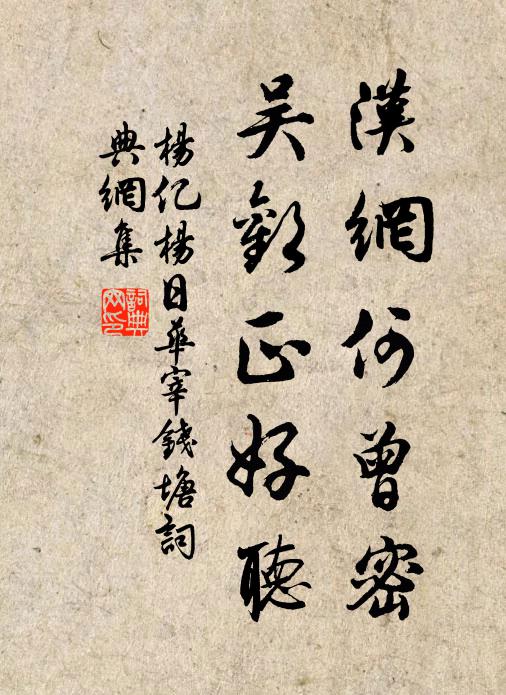 漢網何曾密
吳歈正好聽
楊亿楊日華宰錢塘詞
典網集
詞典網印